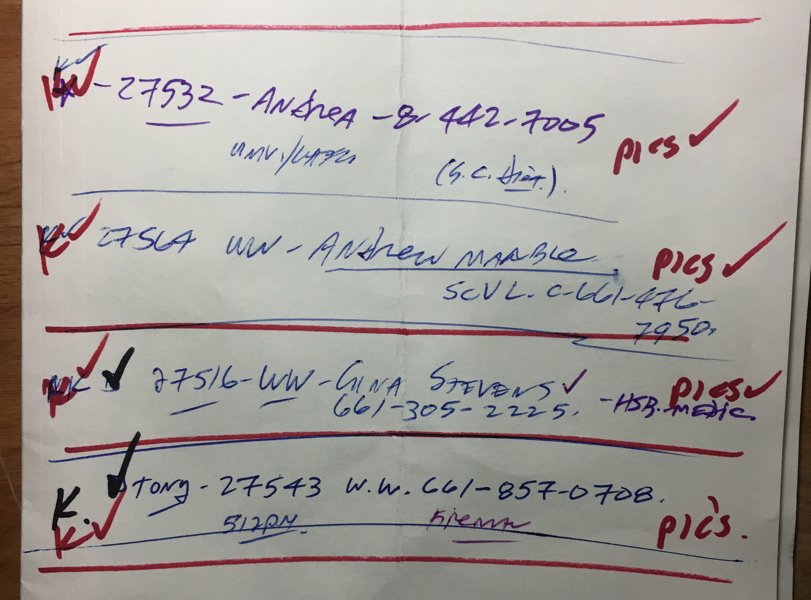 K ✓ - 27532 - ANdreA - 8. 442-7005 pics ✓
(S.C. Dist.).
K ✓ 27564 WW - ANdrew MARBLE pics ✓
SCVL. C-661-476-
7950.
K ✓ ✓ 27516 - WW - GINA STEVENS ✓ pics ✓
661-305-2225. - HSB. MEDIC.
K. ✓ Tony - 27543 W.W. 661-857-0708.
K ✓ 512PM FIREMAN pic's.